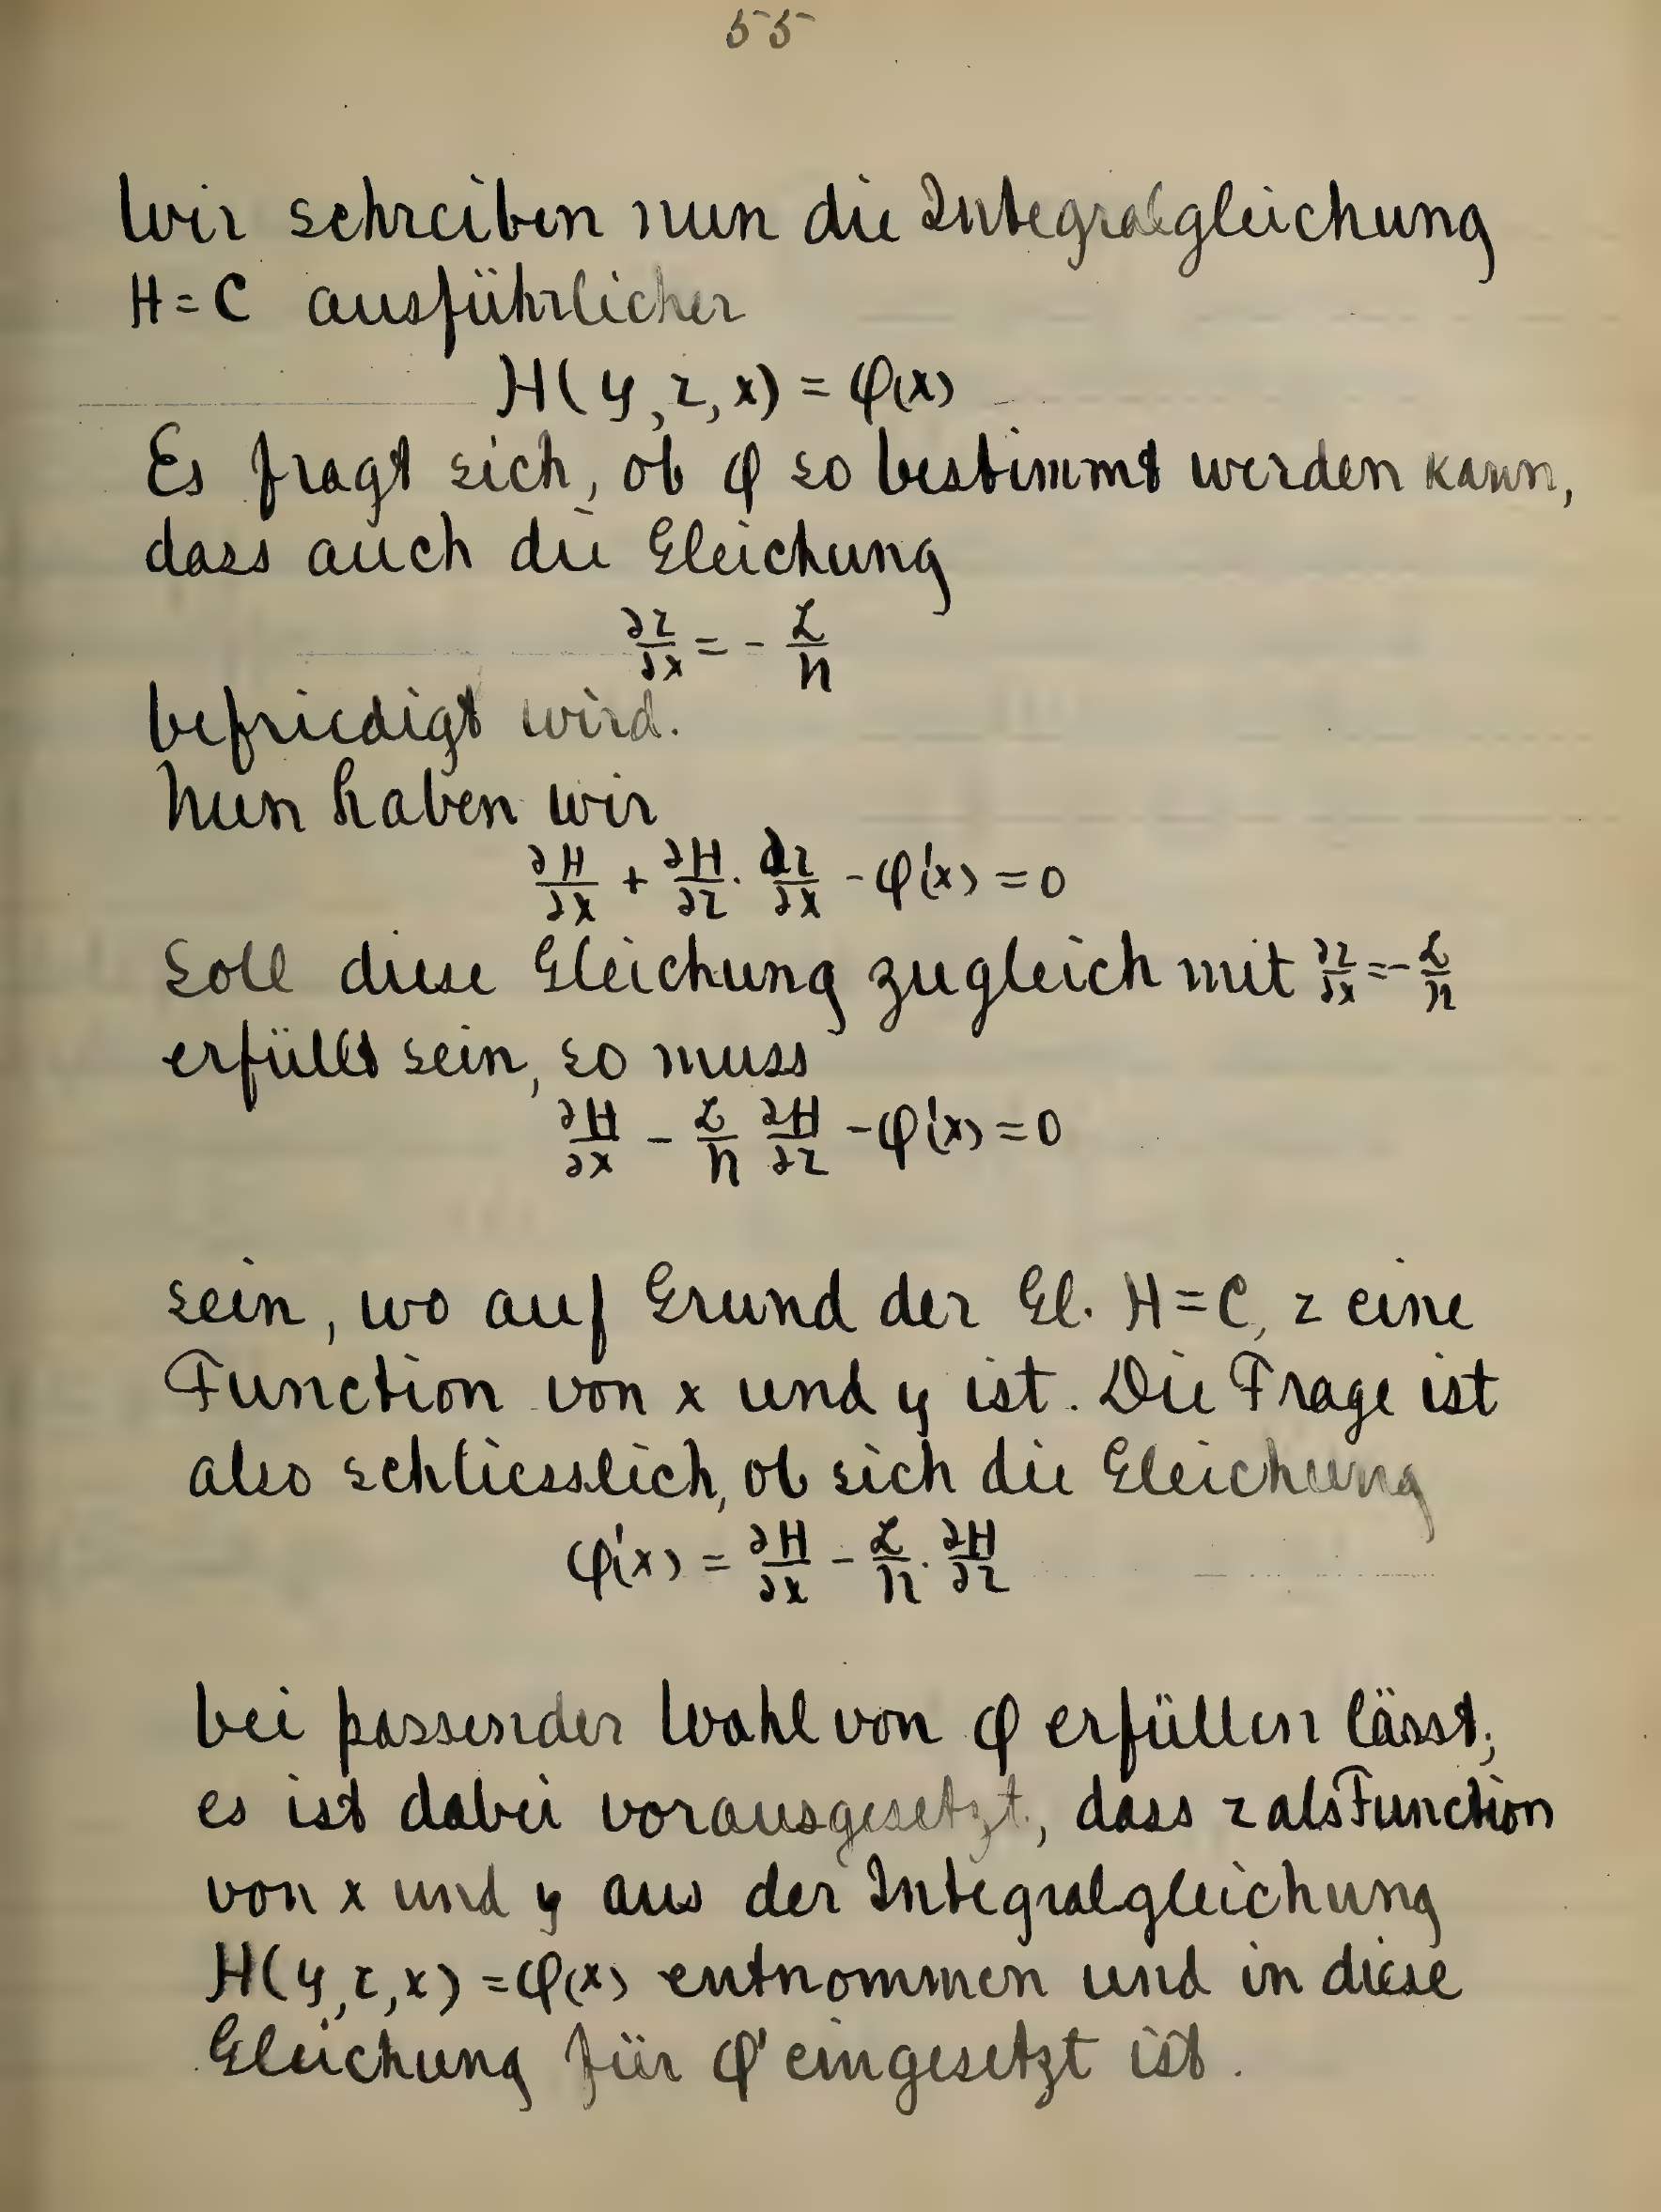 55
Wir schreiben nun die Integralgleichung
H = C ausführlicher
H(y, z, x) = φ(x)
Es fragt sich, ob φ so bestimmt werden kann,
dass auch die Gleichung
∂z/∂x = - L/N
befriedigt wird.
Nun haben wir
∂H/∂x + ∂H/∂z · dz/∂x - φ'(x) = 0
Soll diese Gleichung zugleich mit ∂z/∂x = - L/N
erfüllt sein, so muss
∂H/∂x - L/N ∂H/∂z - φ'(x) = 0
sein, wo auf Grund der Gl. H = C, z eine
Function von x und y ist. Die Frage ist
also schliesslich, ob sich die Gleichung
φ'(x) = ∂H/∂x - L/N · ∂H/∂z
bei passender Wahl von φ erfüllen lässt;
es ist dabei vorausgesetzt, dass z als Function
von x und y aus der Integralgleichung
H(y, z, x) = φ(x) entnommen und in diese
Gleichung für φ' eingesetzt ist.